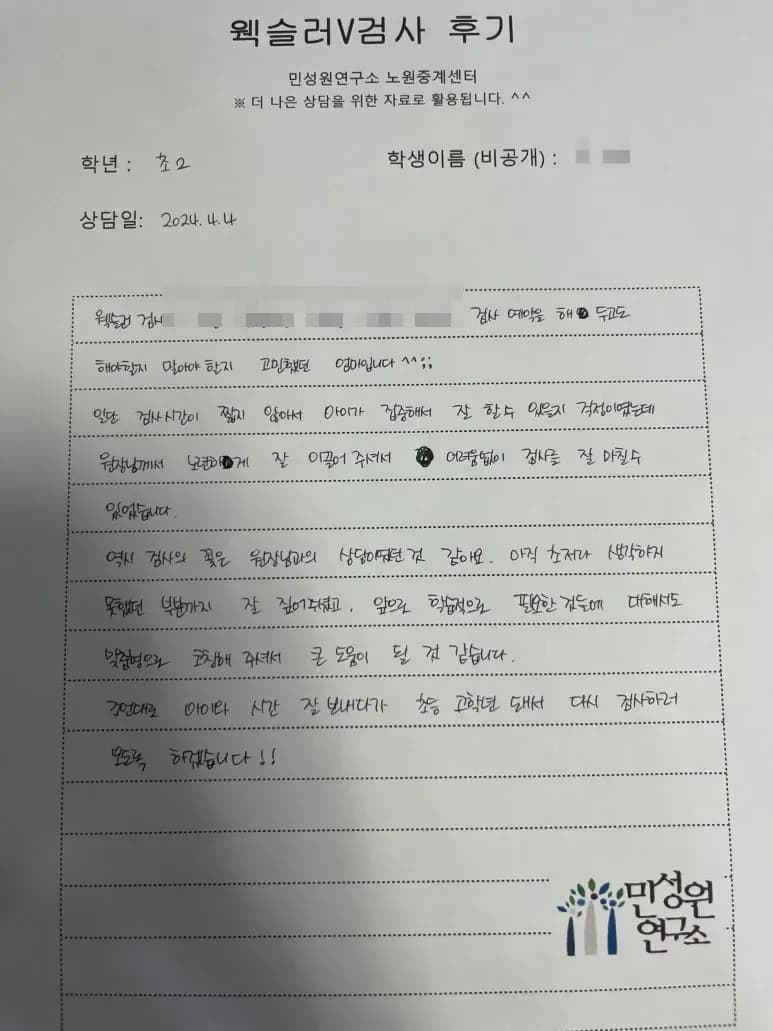 웩슬러V검사 후기
민성원연구소 노원중계센터
※ 더 나은 상담을 위한 자료로 활용됩니다. ^^
학년 : 초2
학생이름 (비공개) :
상담일: 2024.4.4
웩슬러 검사 검사 예약을 해 두고도
해야할지 말아야 할지 고민했던 엄마입니다 ^^;;
일단 검사시간이 짧지 않아서 아이가 집중해서 잘 할수 있을지 걱정이었는데
원장님께서 노련하게 잘 이끌어 주셔서 어려움없이 검사를 잘 마칠수
있었습니다.
역시 검사의 꽃은 원장님과의 상담이었던 것 같아요. 아직 초저라 생각하지
못했던 부분까지 잘 짚어주셨고, 앞으로 학습적으로 필요한 것들에 대해서도
맞춤형으로 코칭해 주셔서 큰 도움이 될 것 같습니다.
조언대로 아이와 시간 잘 보내다가 초등 고학년 돼서 다시 검사하러
오도록 하겠습니다!!
민성원
연구소